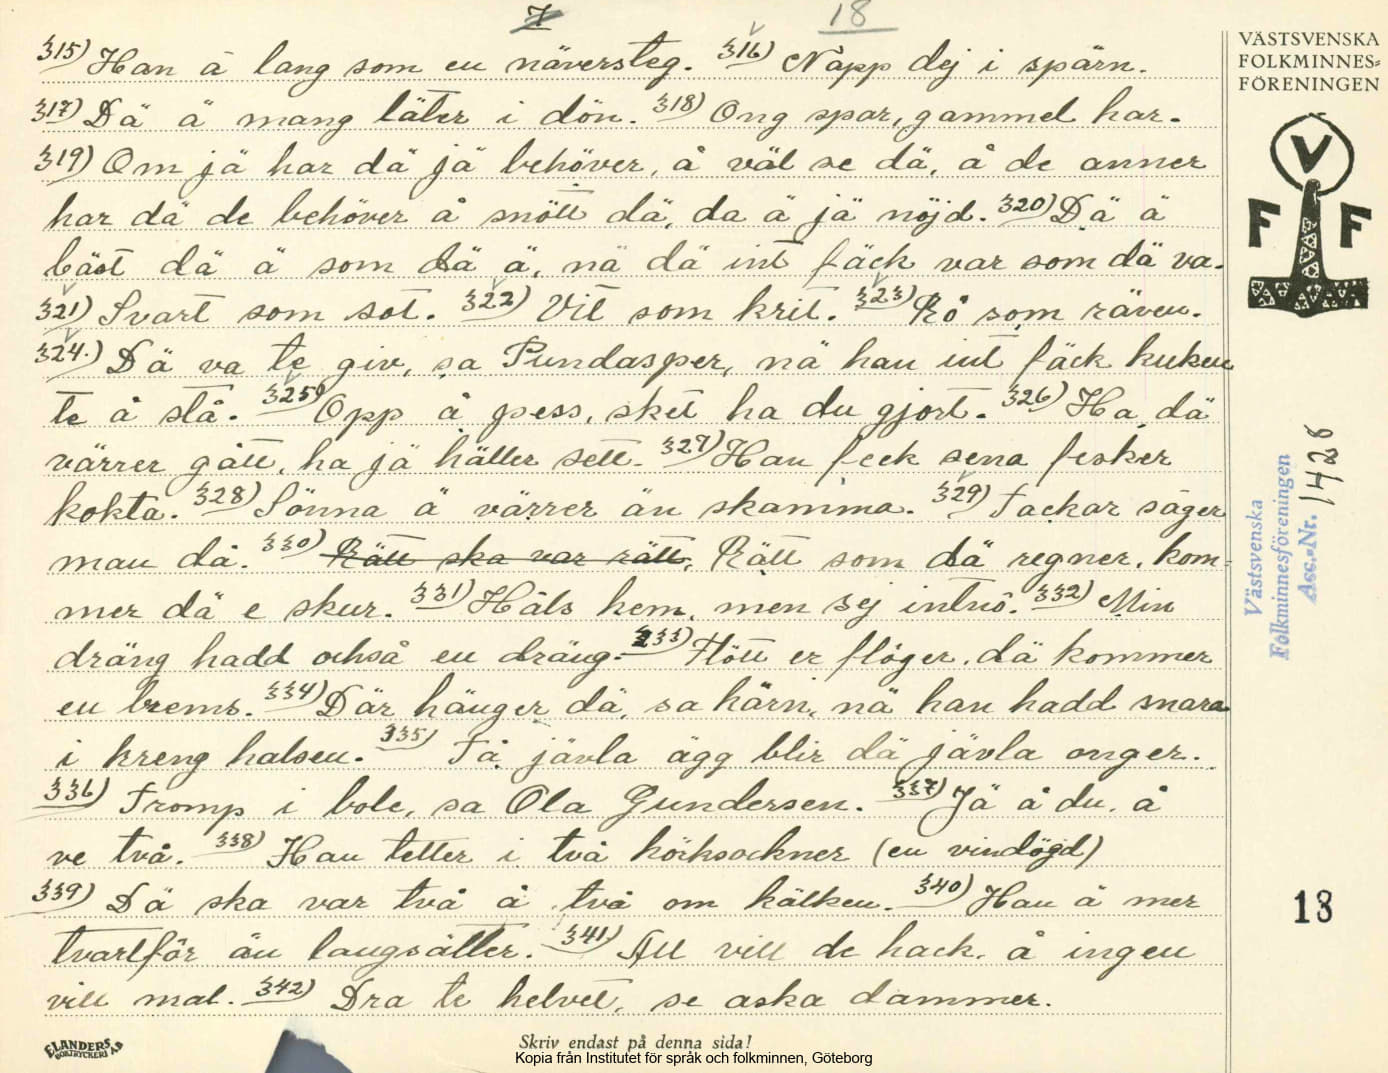 7 18
315) Han ä lang som en näversteg. 316) Näpp dej i spärn.
317) Dä ä mang läter i dön. 318) Ong spar, gammel har.
319) Om jä har dä jä behöver, å väl se dä, å de anner
har dä de behöver å snött dä, da ä jä nöjd. 320) Dä ä
bäst dä ä som dä ä, nä dä int fäck var som dä va.
321) Svart som sot. 322) Vit som krit. 323) Rö som räven.
324.) Dä va te giv, sa Pundasper, nä han int fäck kuken
te å stå. 325) Opp å pess, sket ha du gjort. 326) Ha dä
värrer gått, ha jä häller sett. 327) Han feck sena fesker
kokta. 328) Sönna ä värrer än skamma. 329) Tackar säger
man då. 330) Rätt ska var rätt, Rätt som dä regner, kom-
mer dä e skur. 331) Häls hem, men sej intnö. 332) Min
dräng hadd också en dräng. 333) Flött er flöger, dä kommer
en brems. 334) Där hänger dä, sa härn, nä han hadd snara
i kreng halsen. 335) Tå jävla ägg blir dä jävla onger.
336) Fromp i bole, sa Ola Gundersen. 337) Jä å du, å
ve två. 338) Han tetter i två körksockner (en vindögd)
339) Dä ska var två å två om kälken. 340) Han ä mer
tvartför än langsätter. 341) All vill de hack, å ingen
vill mal. 342) Dra te helvet, se aska dammer.
VÄSTSVENSKA
FOLKMINNES-
FÖRENINGEN
V
F F
Västsvenska
Folkminnesföreningen
Acc.-Nr. 1428
13
ELANDERS
BOKTRYCKERI A.B
Skriv endast på denna sida!
Kopia från Institutet för språk och folkminnen, Göteborg